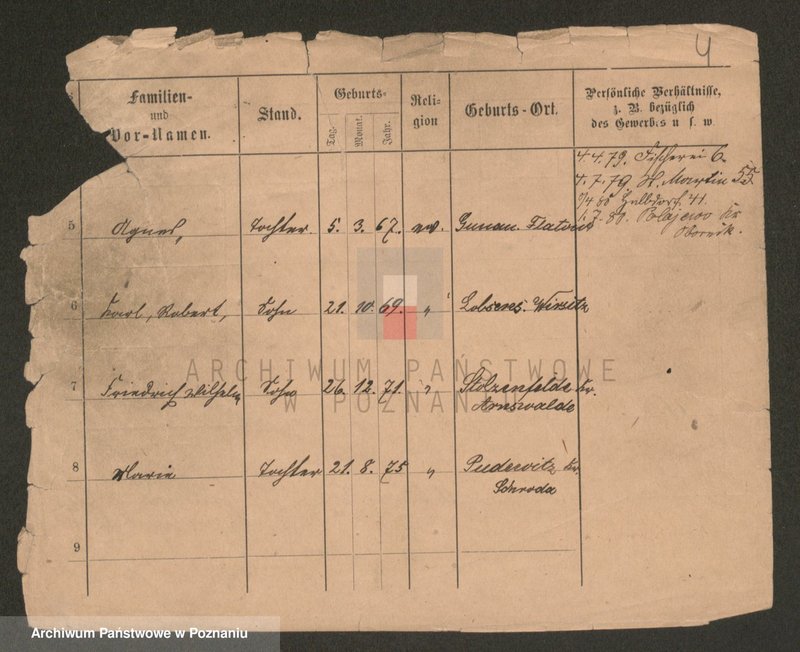 4
Familien- und Vor-Namen.
Stand.
Geburts-
Tag.
Monat.
Jahr.
Religion
Geburts-Ort.
Persönliche Verhältnisse,
z. B. bezüglich
des Gewerbes u. s. w.
4.4.79. Fischerei 6.
4.7.79. St. Martin 55.
Halbdorf. 41.
1.7.81. Polajewo Kr.
Obornik.
5 Agnes, Tochter 5. 3. 67. ev. Flatow
6 Karl, Robert, Sohn 21. 10. 69. " Lobsens. Wirsitz
7 Friedrich Wilhelm Sohn 26. 12. 71. " Stolzenfelde Kr.
Arnswalde
8 Marie Tochter 21. 8. 75 " Pudewitz Kr.
Schroda
9
ARCHIWUM PAŃSTWOWE
W POZNANIU
Archiwum Państwowe w Poznaniu